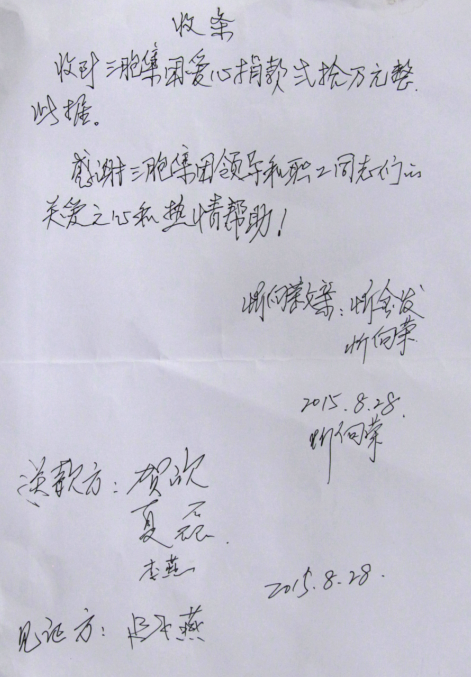 收条
收到三胞集团爱心捐款贰拾万元整.
此据。
感谢三胞集团领导和职工同志们的
关爱之心和热情帮助!
忻向荣父亲:忻金发
忻向荣
2015.8.28.
忻向荣
送款方:贺欢
夏磊.
李燕
2015.8.28.
见证方: 燕